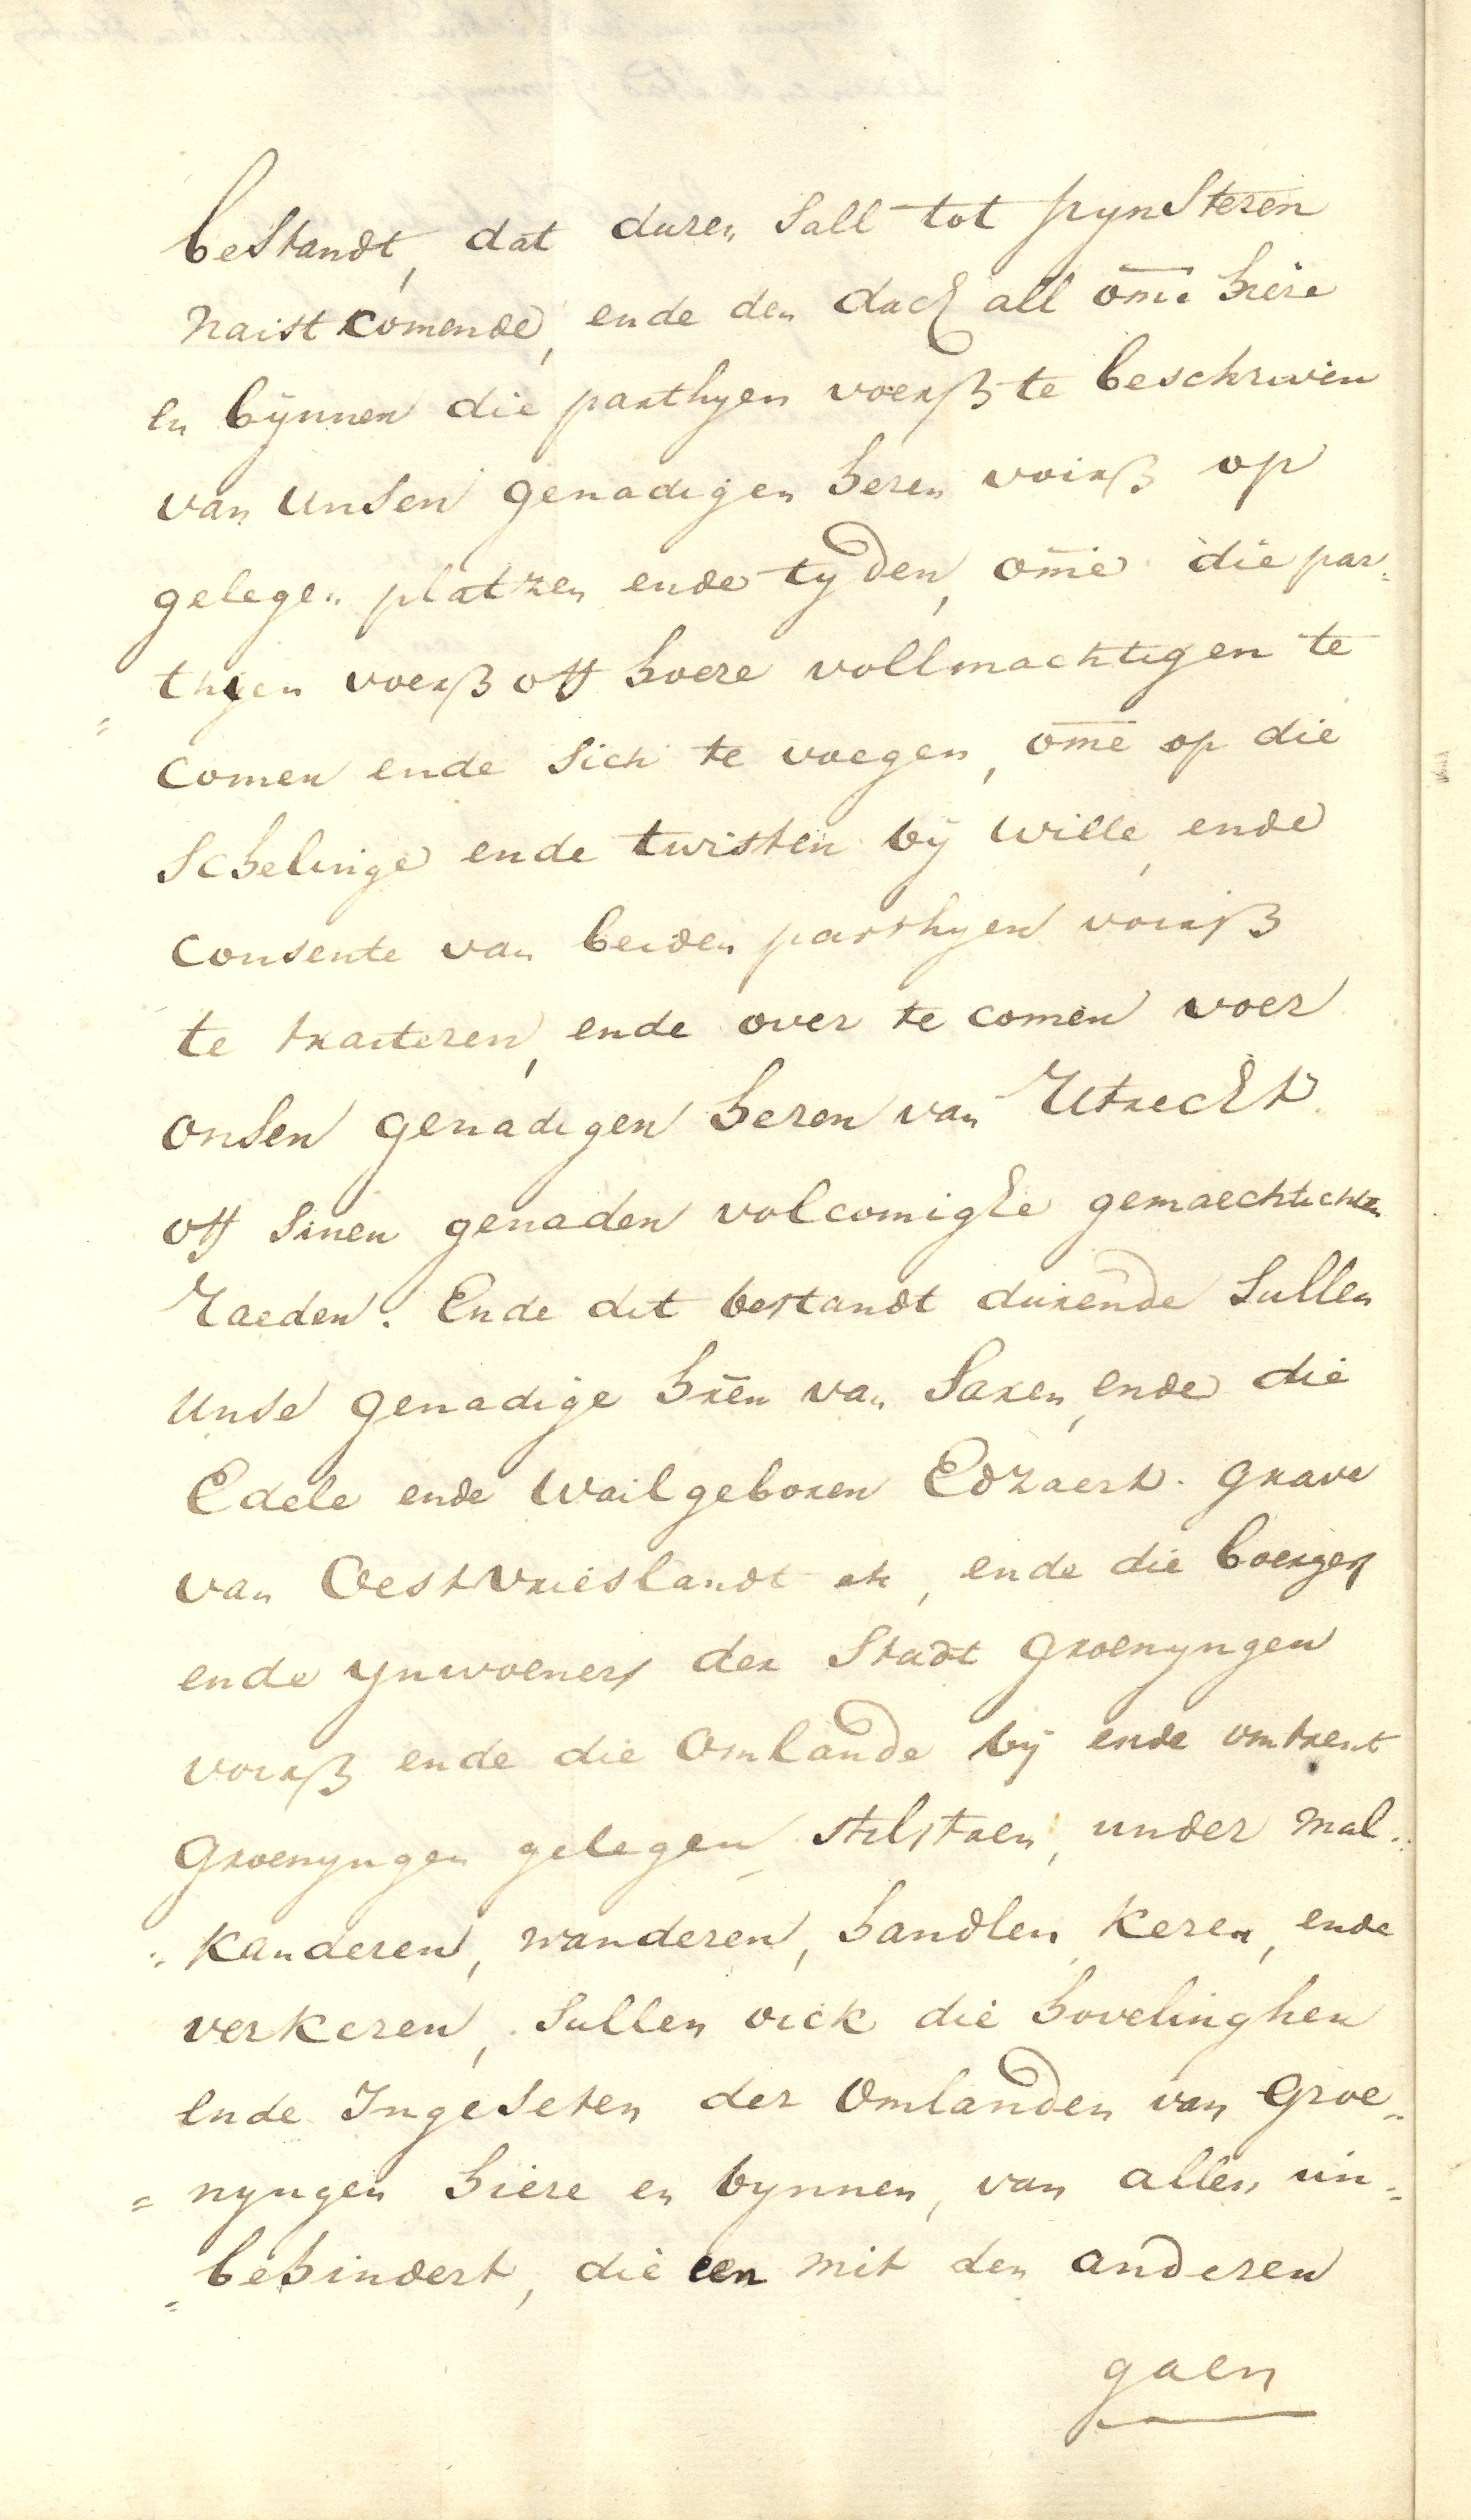 bestandt, dat duren sall tot pynsteren
naist comende, ende den dach all om̄e hiere
en bÿnnen die parthyen voerß te beschriven
van unsen genadigen heren voirß op
gelegen platzen ende tyden, om̄e die par=
thyen voerß off hoere vollmachtigen te
=comen ende sich te voegen, om̄e op die
schelinge ende twisten bÿ wille, ende
consente van beiden parthyen voirß
te tracteren, ende over te comen voer
onsen genadigen heren van Utrecht
off sinen genaden volcomigle gemaechtichten
Raeden. Ende dit bestandt durende sullen
unse genadige hr̄en van Saxen, ende die
Edele ende Wailgeboren Edzaert. grave
van Oestvrieslandt etc, ende die boerger
ende ynwoeners der Stadt groenyngen
voirß ende die Omlande bÿ ende omtrent
groenyngen gelegen stilstaen, under mal=
=kanderen, wanderen, handlen, keren, ende
verkeren, sullen oick die hovelinghen
ende Ingeseten der Omlanden van Groe=
=nyngen hiere en bynnen, van allen un=
=behindert, die een mit den anderen
gaen